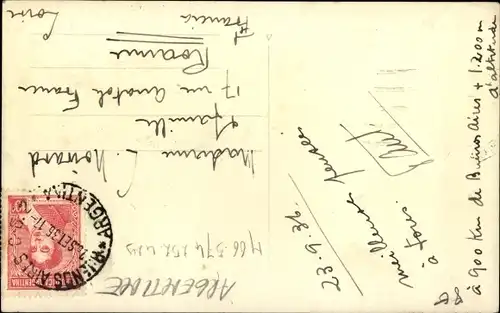 à 900 Km de Buenos Aires + 1200 m
d'altitude
23.9.36
meilleures pensées
à tous.
Madame C.
& famille
17 rue Anatole France
Roanne
Loire
France
ARGENTINE
ARGENTINA
BUENOS AIRES